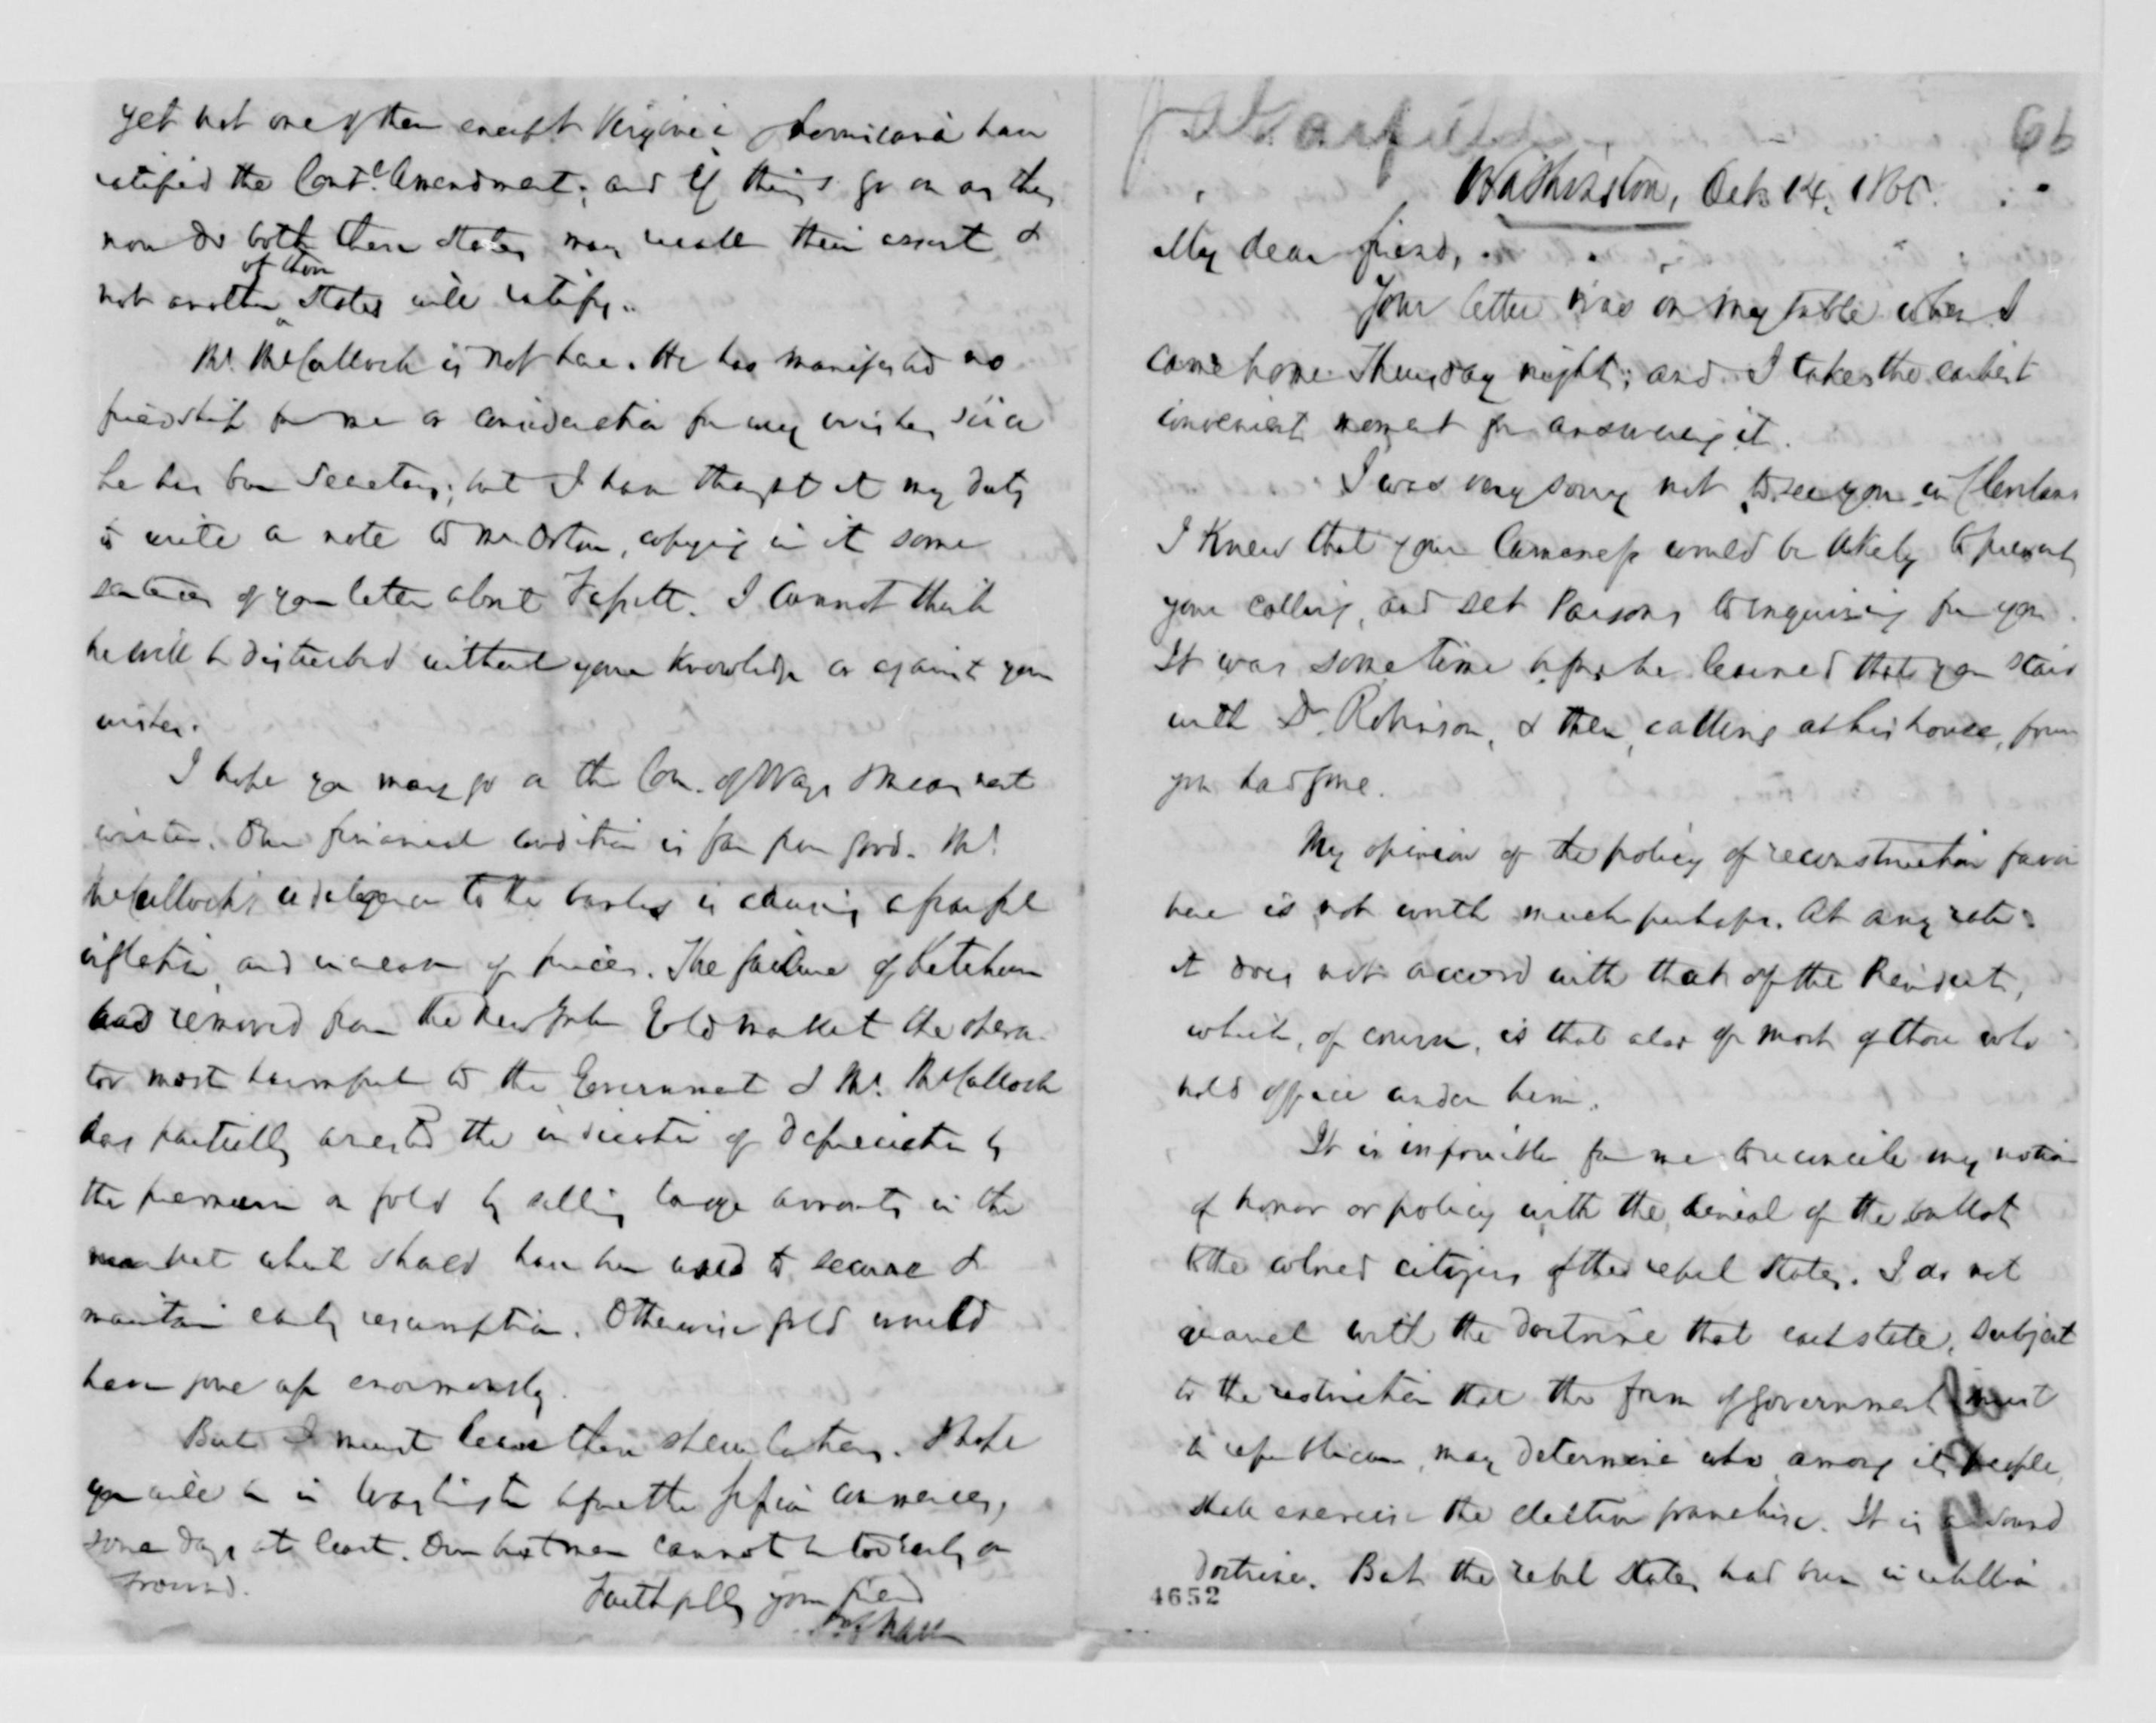 yet not one of them except Virginia & Louisiana have
ratified the Constl. Amendment; and if things go on as they
now do both these States may recall their assent &
of them
not another States will ratify.
Mr. McCulloch is not here. He has manifested no
friendship for me or consideration for my wishes since
he has been Secretary; but I have thought it my duty
to write a note to Mr Orton, copying in it some
sentences of your letter about Fassett. I cannot think
he will be disturbed without your knowledge or against your
wishes.
I hope you may go on the Com. of Ways & Means next
winter. Our financial condition is far from good. Mr.
McCulloch's indulgence to the banks is causing a fearful
inflation and increase of prices. The failure of Ketchum
had removed from the New York Gold market the opera-
tor most harmful to the Government & Mr. McCulloch
has partially arrested the indication of depreciation by
the premium on gold by selling large amounts in the
market which should have been used to secure &
maintain early resumption. Otherwise gold would
have gone up enormously.
But I must leave these speculations. I hope
you will be in Washington before the session commences,
some days at least. Our best men cannot be too early on
ground.
Faithfully your friend
SPChase
J A Garfield
66
Washington, Oct. 14, 1865.
My dear friend,
Your letter was on my table when I
came home Thursday night; and I take the earliest
convenient moment for answering it.
I was very sorry not to see you in Cleveland
I knew that your lameness would be likely to prevent
your calling, and set Parsons to inquiring for you.
It was some time before he learned that you staid
with Dr. Robinson, & then, calling at his house, found
you had gone.
My opinion of the policy of reconstruction favored
here is not worth much perhaps. At any rate
it does not accord with that of the President,
which, of course, is that also of most of those who
hold office under him.
It is impossible for me to reconcile my notions
of honor or policy with the denial of the ballot
to the colored citizens of the rebel States. I do not
quarrel with the doctrine that each state, subject
to the restriction that the form of government must
be republican, may determine who among its people
shall exercise the elective franchise. It is a sound
doctrine. But the rebel States had been in rebellion
4652